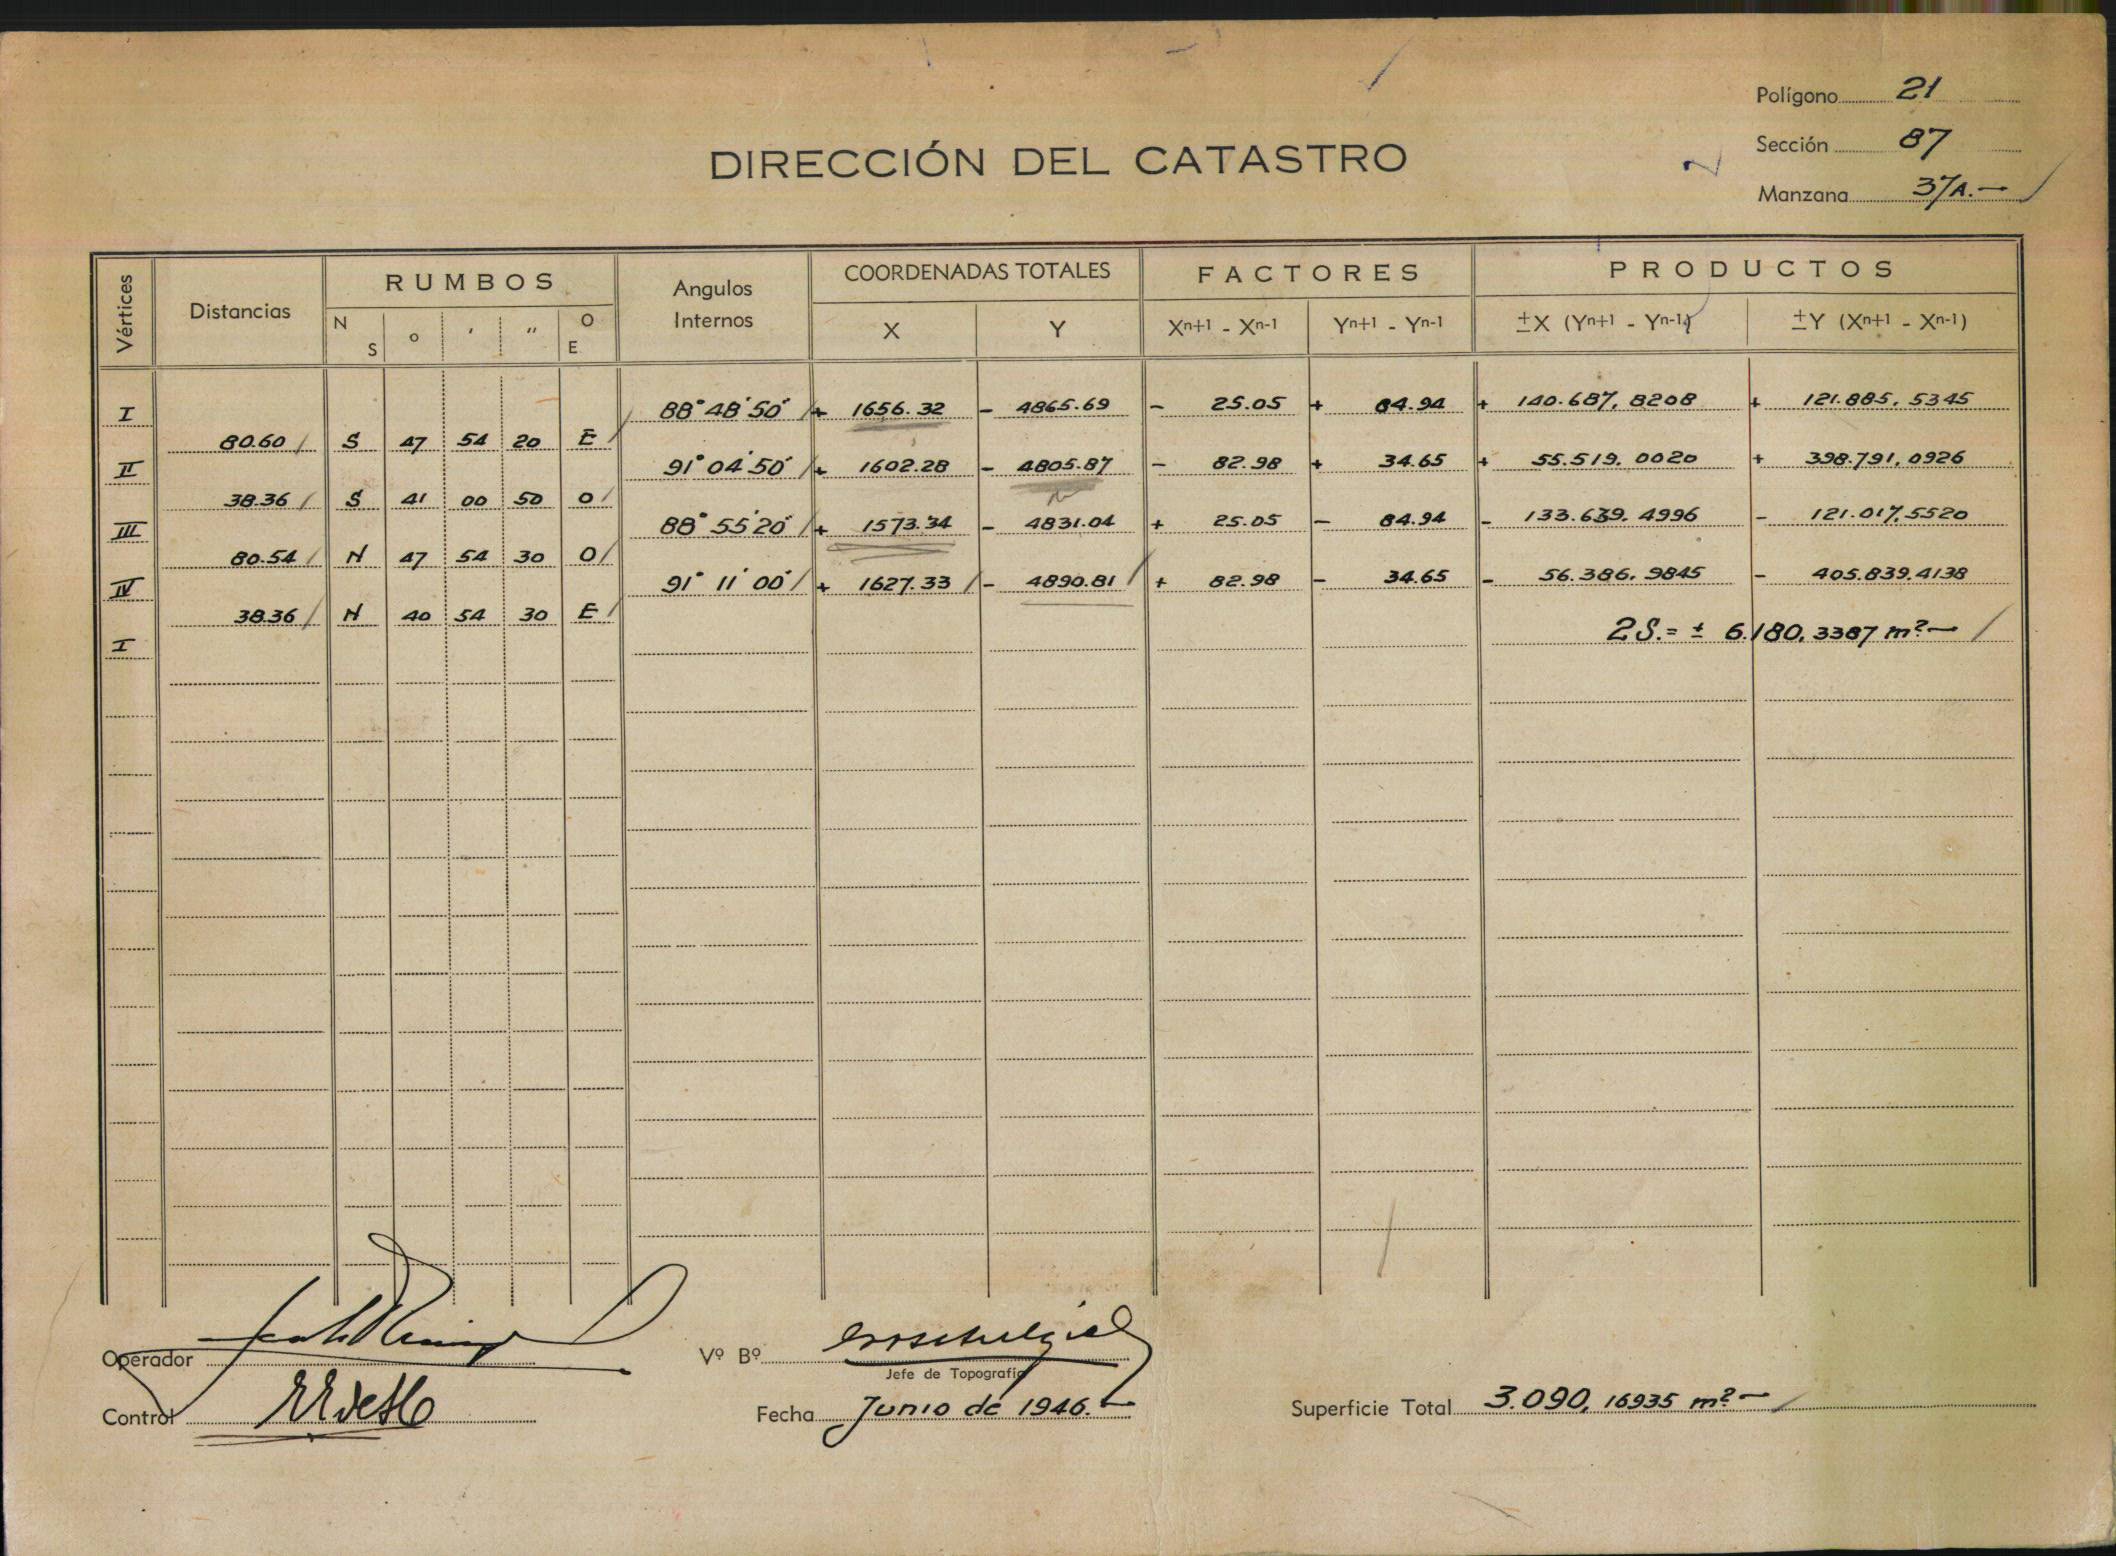 Polígono 21
DIRECCIÓN DEL CATASTRO
Sección 87
Manzana 37A.—
Vértices Distancias RUMBOS Angulos Internos COORDENADAS TOTALES FACTORES PRODUCTOS
N S ° ' " O E X Y Xn+1 - Xn-1 Yn+1 - Yn-1 ±X (Yn+1 - Yn-1) ±Y (Xn+1 - Xn-1)
I 88° 48' 50" + 1656.32 - 4865.69 - 25.05 + 84.94 + 140.687,8208 + 121.885,5345
80.60 S 47 54 20 E
II 91° 04' 50" + 1602.28 - 4805.87 - 82.98 + 34.65 + 55.519,0020 + 398.791,0926
38.36 S 41 00 50 O
III 88° 55' 20" + 1573.34 - 4831.04 + 25.05 - 84.94 - 133.639,4996 - 121.017,5520
80.54 N 47 54 30 O
IV 91° 11' 00" + 1627.33 - 4890.81 + 82.98 - 34.65 - 56.386,9845 - 405.839,4138
38.36 N 40 54 30 E
I 2S.= ± 6.180,3387 m²—
Operador
Vº Bº
Jefe de Topografía
Control
Fecha Junio de 1946.—
Superficie Total 3.090,16935 m²—